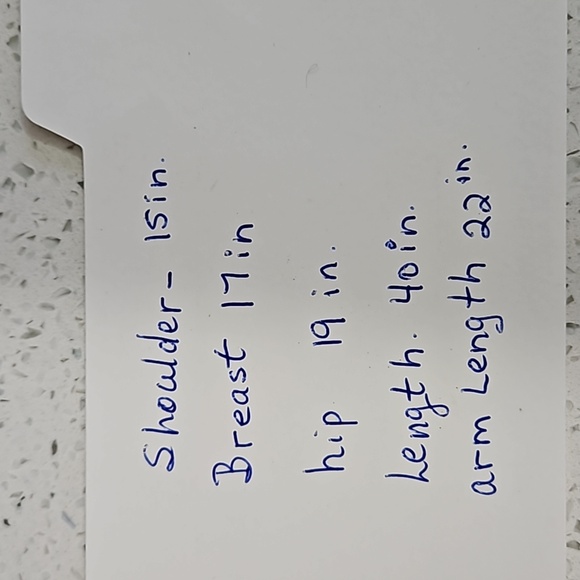 Shoulder - 15in.
Breast 17in
hip 19 in.
Length. 40in.
arm Length 22in.